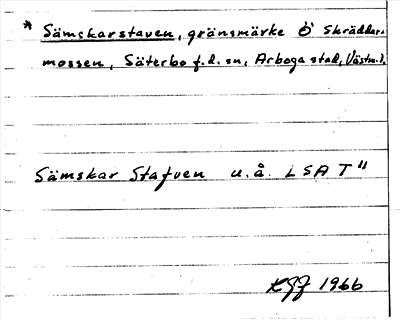 * Sämskarstaven, gränsmärke Ö Skräddar-
mossen, Säterbo f.d. sn, Arboga stad, Västm.l.
Sämskar Stafven u.å. LSA T"
1966